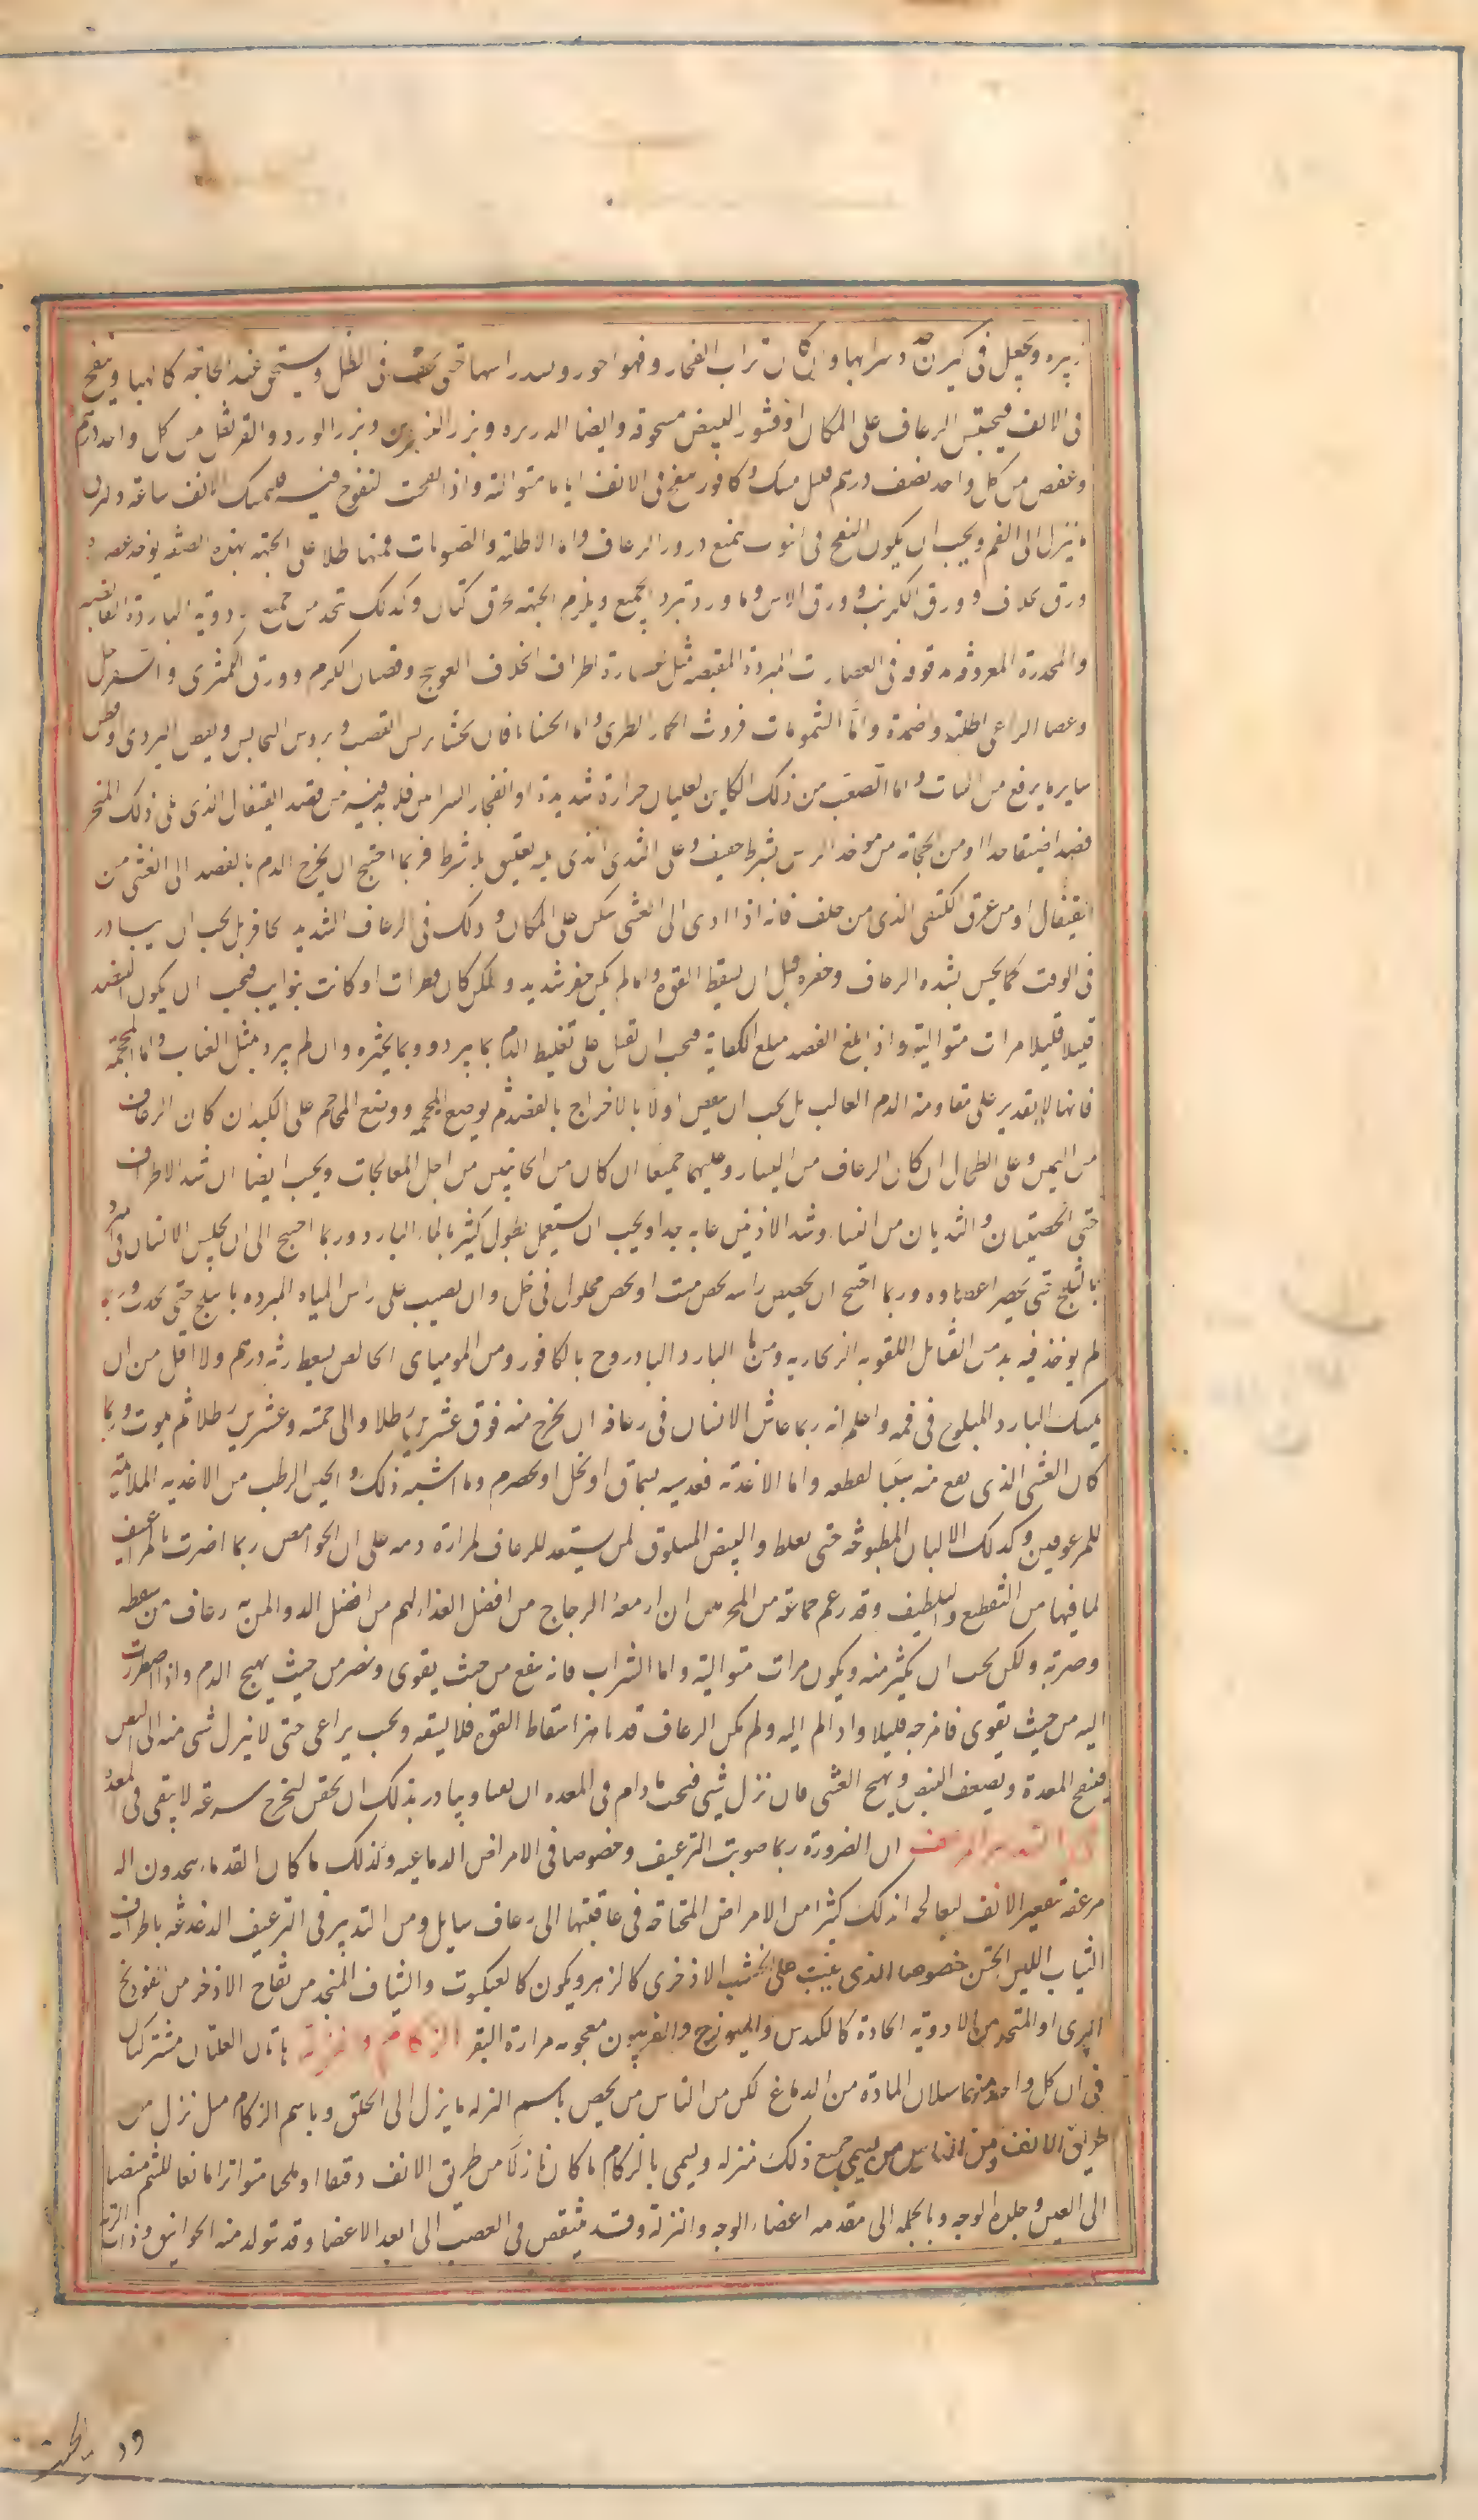 زبره ويجعل في كيزان دسرابها وان كان تراب الفخار وفهو اجود ويسد راسها حتى يجف في الظل ويستحق عند الحاجة كالهبا وينفخ
في الانف فيحتبس الرعاف على المكان او قشور البيض مسحوقة وايضا الدريره وبزر البزر وبزر الورد والقرنفل من كل واحد درهم
وعفص من كل واحد نصف درهم قليل مسك وكافور ينفخ في الانف اياما متوالية واذا نفخت النفوخ فيه فليمسك الانف ساعة وليبزق
ما ينزل الى الفم ويجب ان يكون النفخ في انبوب يمنع درور الرعاف واما الاطلية والضمادات فمنها طلا على الجبهة بهذه الصفة يوخذ عصارة
ورق الخلاف وورق الكرم وورق الاس وماورد تبرد الجميع ويلزم الجبهة بخرق كتان وكذلك تتخذ من جميع الادوية الباردة القابضة
والمخدرة المعروفة مدقوقة في العصارات المبردة المقبضة مثل عصارة اطراف الخلاف والعوسج وقضبان الكرم وورق الكمثرى والسفرجل
وعصا الراعي اطلية واضمدة واما الشمومات فروث الحمار الطري واما الحشايا فان يحشى بريش القصب وبروس المكانس وبعض البردي وقطن
سايره يرفع من النبات واما الصعب من ذلك الكاين لغليان حرارة شديدة او انفجار الشرايين فلا بد فيه من فصد القيفال الذي يلي ذلك المنخر
فصدا ضيقا جدا ومن الحجامة من موخر الراس بشرط خفيف وعلى الثدي الذي يليه تعليق بلا شرط فربما احتيج ان يخرج الدم بالفصد الى الغشي من
القيفال او من عرق الكتفي الذي من خلف فانه اذا ادى الى الغشي سكن على المكان وذلك في الرعاف الشديد الحافز بل يجب ان يبادر
في الوقت كما يحس بشده الرعاف وحفزه قبل ان يسقط القوة واما لم يكن حفز شديد ولكن كان قطرات او كانت بنوايب فيجب ان يكون الفصد
قليلا قليلا مرات متوالية واذا بلغ الفصد مبلغ الكفاية فيجب ان تقبل على تغليظ الدم بما يبرد وبما يخثره وان لم يبرد مثل العناب واما المحجمة
فانها لا تقدر على مقاومة الدم الغالب بل يجب ان ينقص اولا بالاخراج بالفصد ثم يوضع المحجمه ووضع المحاجم على الكبد ان كان الرعاف
من اليمين وعلى الطحال ان كان الرعاف من اليسار وعليهما جميعا ان كان من الجانبين من اجل المعالجات ويجب ايضا ان شد الاطراف
حتى الخصيتان والثديان من النسا وشد الاذنين غاية جيدا ويجب ان يستعمل نطول كثير بالماء البارد وربما احتيج الى ان يجلس الانسان في ماء مبرد
بالثلج حتى يخصر اعضاوه وربما احتيج ان يجصص راسه بجص ميت او بجص محلول في خل وان يصيب على راس المياه المبرده بالثلج حتى يخدر وربما
لم يوخذ فيه بد من الفتايل القويه الزنجاريه ومن ماء البارد البادروح بالكافور ومن الموميا الخالص يسعط زنة درهم ولا اقل من ان
يمسك البارد المثلوج في فمه واعلم انه ربما عاش الانسان في رعافه ان يخرج منه فوق عشرين رطلا والى خمسة وعشرين رطلا ثم يموت وربما
كان الغشي الذي يقع منه سببا لقطعه واما الاغذية فعدسيه بسماق او بخل او بحصرم وما اشبه ذلك والجبن الرطب من الاغذيه الملائمة
للمرعوفين وكذلك الالبان المطبوخه حتى يغلظ والبيض المسلوق لمن يستعد للرعاف لمرارة دمه على ان الحوامض ربما اضرت بالمراعيف
لما فيها من التقطيع والتلطيف وقد زعم جماعة من المجربين ان ادمغة الدجاج من افضل الغذاء لهم من افضل الدوا لمن به رعاف من سقطه
وضربة ولكن يجب ان يكثر منه ويكون مرات متوالية واما الشراب فانه ينفع من حيث يقوي ويضر من حيث يهيج الدم واذا اضطررت
اليه من حيث يقوي فامزجه قليلا واذا لم اليه ولم يكن الرعاف قد ناهز اسقاط القوة فلا يسقه ويجب يراعى حتى لا ينزل شي منه الى البطن
فينفخ المعدة ويضعف النبض ويهيج الغشي فان نزل شي فيجب مادام في المعده ان يتقيا ويبادر بذلك ان يحقن ليخرج بسرعة لا يبقى في المعدة
ان الضرورة ربما صوبت الترعيف وخصوصا في الامراض الدماغيه وكذلك ما كان القدماء يتخدون اله
مرعفة تعقير الانف لمعالجه اذ كثيرا من الامراض المحتاجة في عاقبتها الى رعاف سايل ومن التدبير في الترعيف الدغدغه باطراف
النبات اللين الخشن خصوصا الذي ينبت على خشب الاذخري كالزهر ويكون كالعنكبوت والشياف المتخذ من فقاح الاذخر من الفودنج
البري او المتخذ من الادوية الحادة كالكندس والميويزج والفربيون معجونه مرارة البقر الزكام والنزلة هاتان العلتان مشتركتان
في ان كل واحد منهما سيلان المادة من الدماغ لكن من الناس من يخص باسم النزله ما ينزل الى الحلق وباسم الزكام ما نزل من
طريق الانف ومن الناس من يسمي جميع ذلك منزله ويسمى بالزكام ما كان نازلا من طريق الانف دقيقا او ملحا متواترا مانعا للشم منصبا
الى العين وجلدة الوجه وبالجمله الى مقدمه اعضاء الوجه والنزلة وقد ينتفض في العصب الى ابعد الاعضا وقد تتولد منه الخوانيق وذات الرئة